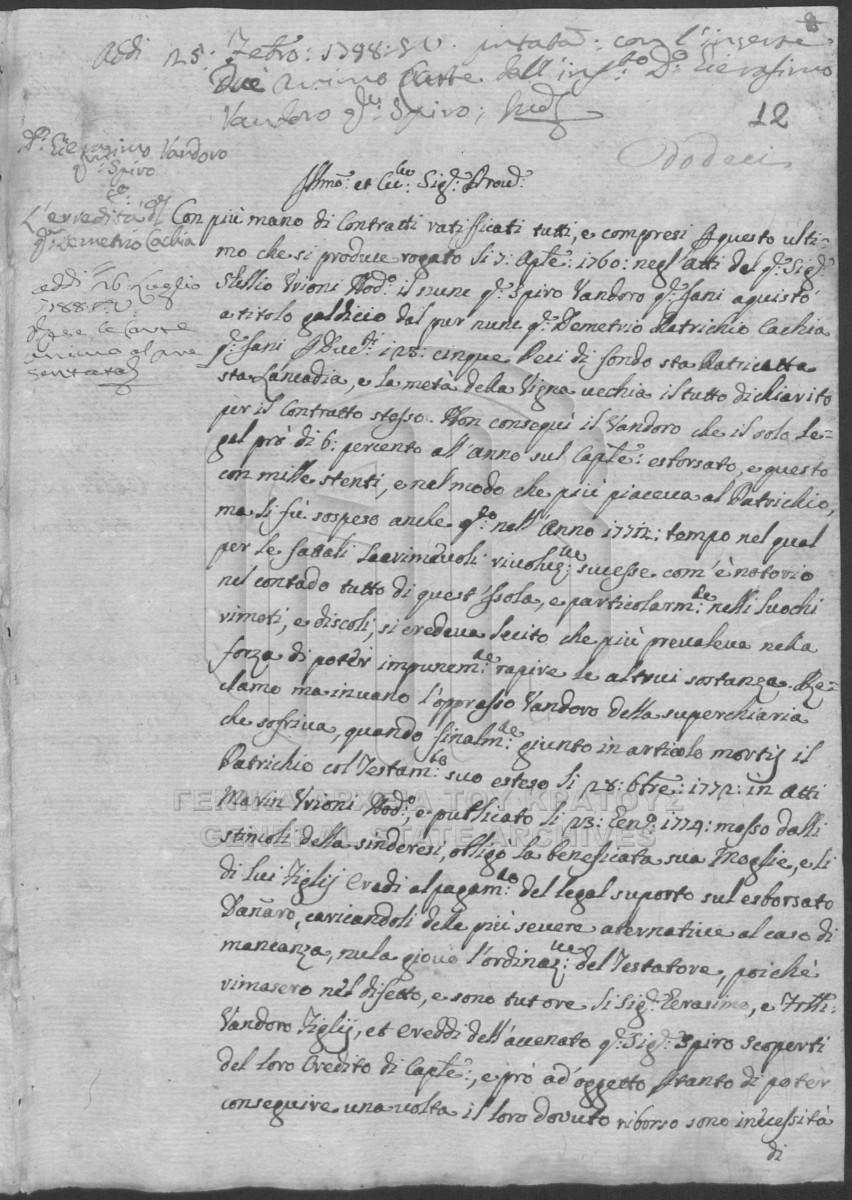 8
Addi 25: Febro: 1788: S.V. pntata: con l'inserte
Due Animo Carte dall' infto Dr: Gierasimo
Vandoro qm: Spiro;
12
Dodeci
Dr: Gierasimo Vandoro
qm: Spiro
Co:
L'erredità del
qm: Demetrio Cachia
addi 26 Luglio
1788: S.V.
carte
animo al pre
sentata
Illmo: et Ecc:mo Sigr: Prove:
Con più mano di Contratti ratifficati tutti, e compresi P questo ulti=
mo che si produce rogato li 7: Aple: 1760: negl'atti del qm: Sigr:
Stellio Vrioni Nod:o il nunc qm: Spiro Vandoro qm: Zani aquistò
a titolo galdicio dal pur nunc qm: Demetrio Patrichio Cachia
qm: Zani P Duc:ti 128: cinque Pezi di fondo sta Patricatta
sta Lancadia, e la metà della Vigna vechia il tutto dichiarito
per il Contratto stesso. Non consequì il Vandoro che il solo Le=
gal prò di 6: percento all'anno sul Caple: esborsato, e questo
con mille stenti, e nel modo che più piaceva al Patrichio,
ma li fù sospeso anche qto: nell'Anno 1772: tempo nel qual
per le fatali Lacrimevoli rivoluz:ne sucesse com'è notorio
nel contado tutto di quest'Isola, e particolarm:te nelli luochi
rimoti, e discoli, si credeva lecito che più prevaleva nella
forza di poter impunem:te rapire le altrui sostanze. Re=
clamo ma invano l'oppresso Vandoro della superchiaria
che sofriva, quando finalm:te giunto in articolo mortis il
Patrichio col Testam:to suo esteso li 28: 8tre: 1772: in atti
Marin Vrioni Nod:o, e publicato li 23: Gen:o 1774: mosso dalli
stimoli della sinderesi, obligò la beneficata sua Moglie, e li
di lui Figlij Eredi al pagam:to del legal suporto sul esborsato
Dañaro, caricandoli delle più severe aternative al caso di
mancanza, nula giovò l'ordinaz:ne del Testatore, poichè
rimasero nel difetto, e sono tutore li Sigr: Gerasimo, e Frlli:
Vandoro Figlij, et Ereddi dell'accenato qm: Sigr: Spiro scoperti
del loro Credito di Caple:, e prò ad'oggetto ptanto di poter
conseguire una volta il loro dovuto riborso sono inecessità
di
ΓΕΝΙΚΑ ΑΡΧΕΙΑ ΤΟΥ ΚΡΑΤΟΥΣ
GENERAL STATE ARCHIVES